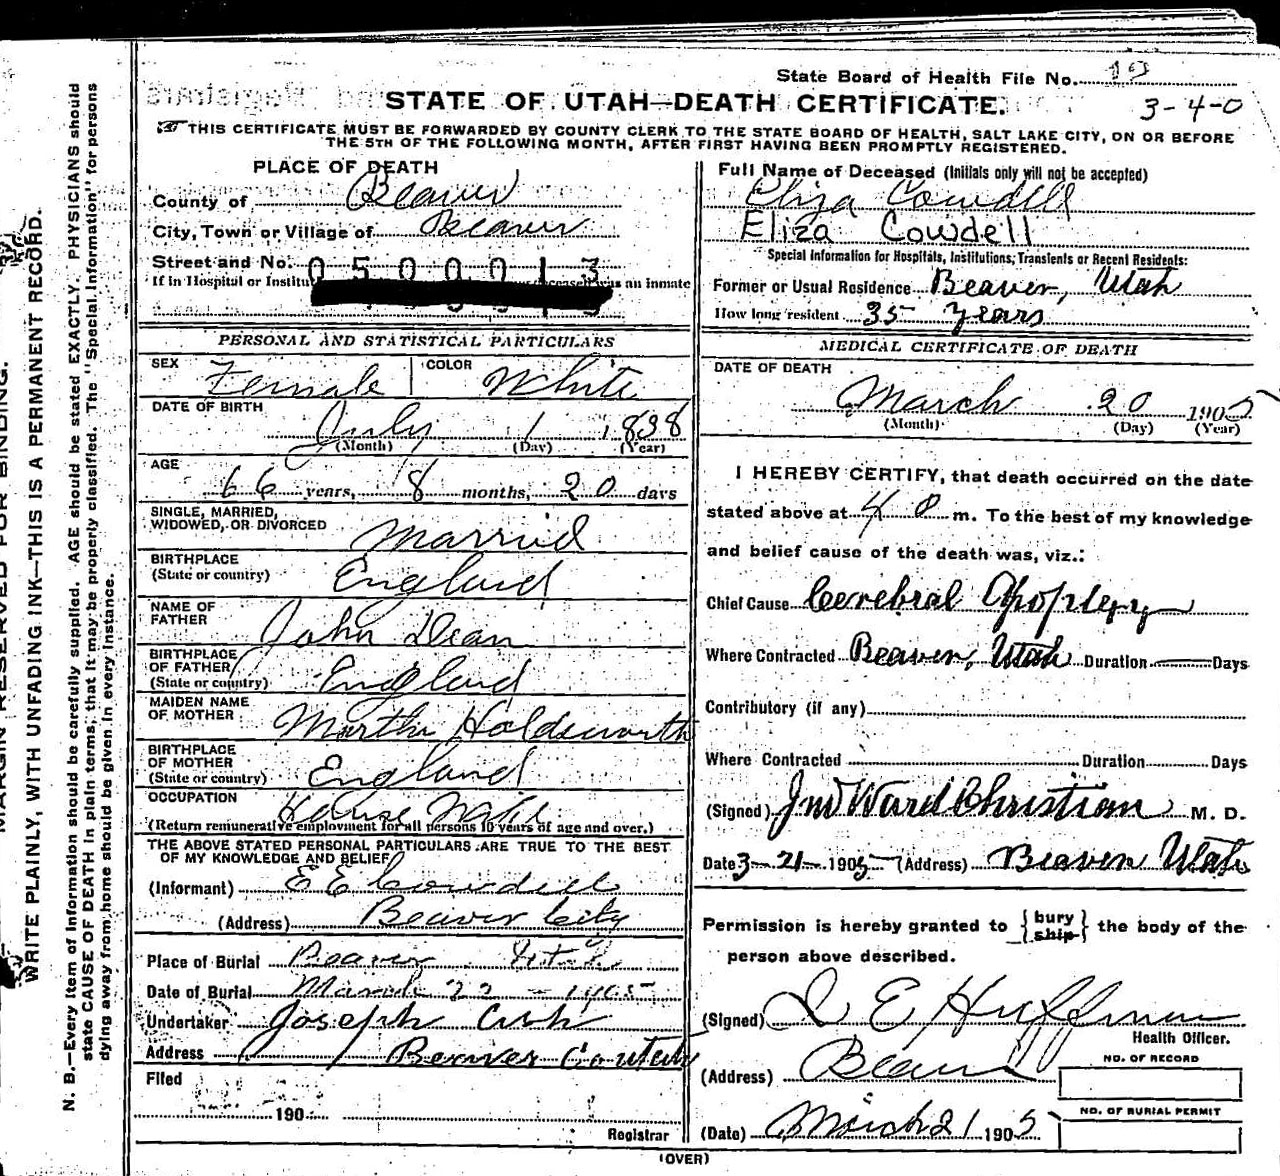 State Board of Health File No. 13
3-4-0
STATE OF UTAH—DEATH CERTIFICATE.
THIS CERTIFICATE MUST BE FORWARDED BY COUNTY CLERK TO THE STATE BOARD OF HEALTH, SALT LAKE CITY, ON OR BEFORE
THE 5TH OF THE FOLLOWING MONTH, AFTER FIRST HAVING BEEN PROMPTLY REGISTERED.
PLACE OF DEATH
County of Beaver
City, Town or Village of Beaver
Street and No. 0500013
If in Hospital or was an inmate
PERSONAL AND STATISTICAL PARTICULARS
SEX Female COLOR White
DATE OF BIRTH
July 1 1838
(Month) (Day) (Year)
AGE
66 years, 8 months, 20 days
SINGLE, MARRIED,
WIDOWED, OR DIVORCED Married
BIRTHPLACE
(State or country) England
NAME OF
FATHER John Dean
BIRTHPLACE
OF FATHER
(State or country) England
MAIDEN NAME
OF MOTHER Martha Holdsworth
BIRTHPLACE
OF MOTHER
(State or country) England
OCCUPATION House Wife
(Return remunerative employment for all persons 10 years of age and over.)
THE ABOVE STATED PERSONAL PARTICULARS ARE TRUE TO THE BEST
OF MY KNOWLEDGE AND BELIEF
(Informant) E E Cowdell
(Address) Beaver City
Place of Burial Beaver Utah
Date of Burial March 22 - 1905
Undertaker Joseph
Address Beaver Co Utah
Filed
190
Registrar
Full Name of Deceased (Initials only will not be accepted)
Eliza Cowdell
Eliza Cowdell
Special Information for Hospitals, Institutions, Transients or Recent Residents:
Former or Usual Residence Beaver, Utah
How long resident 35 years
MEDICAL CERTIFICATE OF DEATH
DATE OF DEATH
March 20 1905
(Month) (Day) (Year)
I HEREBY CERTIFY, that death occurred on the date
stated above at 4 m. To the best of my knowledge
and belief cause of the death was, viz.:
Chief Cause Cerebral Apoplexy
Where Contracted Beaver, Utah Duration Days
Contributory (if any)
Where Contracted Duration Days
(Signed) Jno Ward Christian M. D.
Date 3-21-1905 (Address) Beaver Utah
Permission is hereby granted to {bury ship} the body of the
person above described.
(Signed) E Huffman
Health Officer.
(Address) Beaver
NO. OF RECORD
NO. OF BURIAL PERMIT
(Date) March 21 1905
(OVER)
MARGIN RESERVED FOR BINDING.
WRITE PLAINLY, WITH UNFADING INK—THIS IS A PERMANENT RECORD.
N. B.—Every item of information should be carefully supplied. AGE should be stated EXACTLY. PHYSICIANS should
state CAUSE OF DEATH in plain terms, that it may be properly classified. The "Special Information" for persons
dying away from home should be given in every instance.